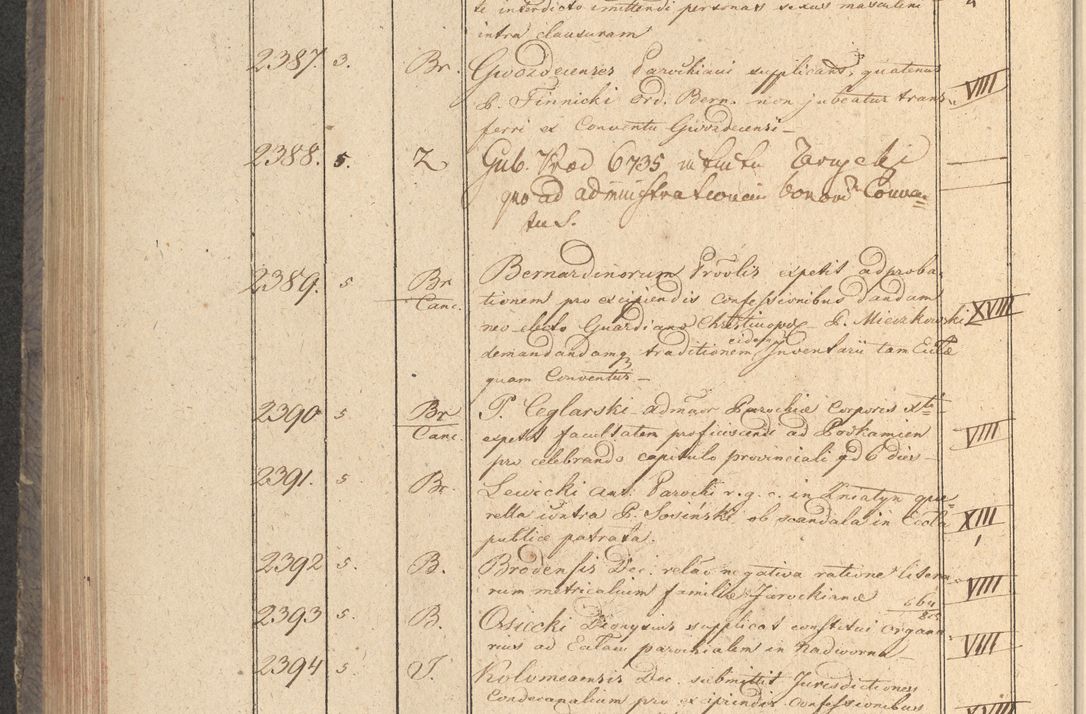 te interdicto imittendi personas sexus masculini
intra clausuram
2387. 3. Br. Gwozdecenses Parochiani supplicant, quatenus VIII
P. Finnicki ord. Bern. non jubeatur trans-
ferri ex Conventu Gwozdecensi –
2388. 5. Z Gub. 6735
quoad administrationem bonor Conven-
tus.
2389. 5 Br Canc. Bernardinorum Provlis expetit adproba-
tionem pro excipiendis confessionibus dandam XVIII
neo electo Guardiano Christinopol. P. Mieczkowski
demandandamq traditionem eidem Inventarii tam Eccliæ
quam Conventus –
2390 5 Br Canc. P. Ceglarski admaor Parochiæ Corporis Xti
expetit facultatem proficiscendi ad Podkamien VIII
pro celebrando capitulo provinciali qd 6 dies –
2391. 5 Br. Lewicki Ant. Parochi r. g. c. in Kniatyn que-
rella contra P. Sosiński ob scandala in Eccla XIII
publice patrata.
2392 5. B. Brodensis Dec. relao negativa ratione litera-
rum metricalium familiæ Jarockianæ VIII
2393 5 B. Osiecki Dionysius supplicat constitui organa-
rius ad Ecclam parochialem in Nadworna – VIII
2394 5 J. Kolomeaensis Dec. submittit Jurisdictiones
Condecanalium pro excipiendis Confessionibus XVIII